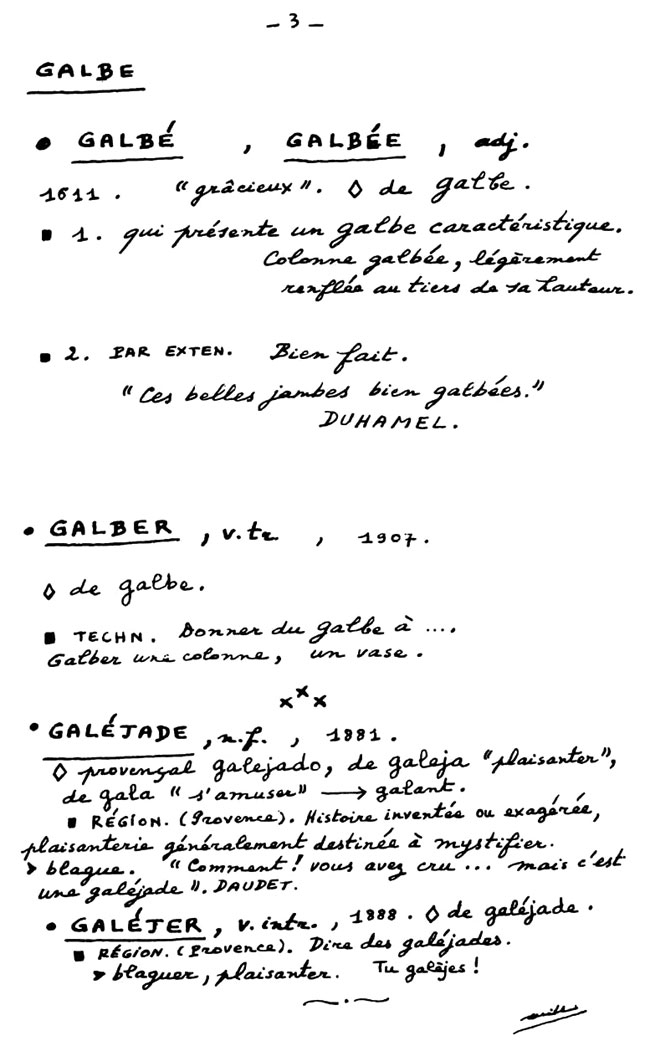 – 3 –
GALBE
• GALBÉ , GALBÉE , adj.
1611 . "grâcieux". ◊ de galbe.
■ 1. qui présente un galbe caractéristique.
Colonne galbée, légèrement
renflée au tiers de sa hauteur.
■ 2. PAR EXTEN. Bien fait.
"Ces belles jambes bien galbées."
DUHAMEL.
• GALBER , v.tr , 1907.
◊ de galbe.
■ TECHN. Donner du galbe à ....
Galber une colonne, un vase.
x x x
• GALÉJADE , n.f. , 1881.
◊ provençal galejado, de galeja "plaisanter",
de gala "s'amuser" → galant.
■ RÉGION. (Provence). Histoire inventée ou exagérée,
plaisanterie généralement destinée à mystifier.
➤ blague. "Comment! vous avez cru ... mais c'est
une galéjade". DAUDET.
• GALÉJER , v. intr. , 1888. ◊ de galéjade.
■ RÉGION. (Provence). Dire des galéjades.
➤ blaguer, plaisanter. Tu galèjes!